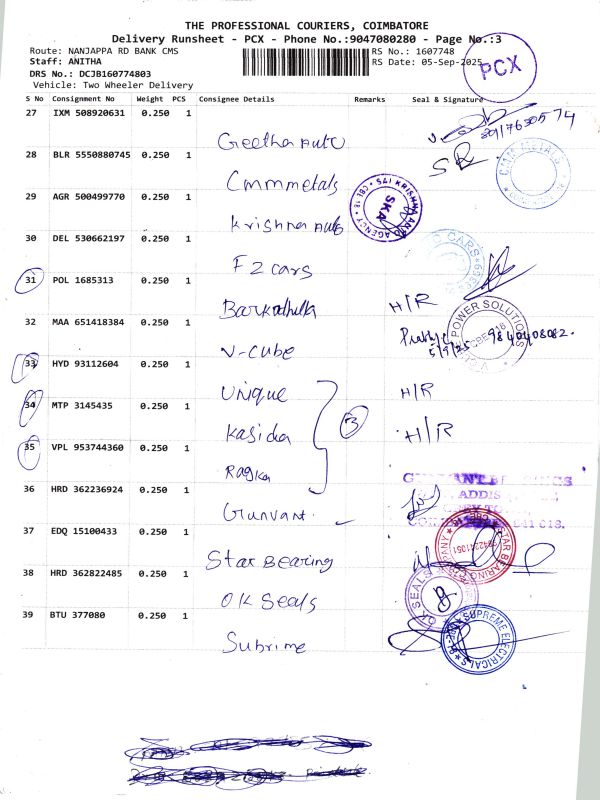 THE PROFESSIONAL COURIERS, COIMBATORE
Delivery Runsheet - PCX - Phone No.:9047080280 - Page No.:3
Route: NANJAPPA RD BANK CMS
RS No.: 1607748
Staff: ANITHA
RS Date: 05-Sep-2025
DRS No.: DCJB160774803
Vehicle: Two Wheeler Delivery
PCX
S No Consignment No Weight PCS Consignee Details Remarks Seal & Signature
27 IXM 508920631 0.250 1
Geetha Auto
8917630574
28 BLR 5550880745 0.250 1
Cmmmetals
CMM METALS
29 AGR 500499770 0.250 1
Krishna Auto
SAI KRISHNA AGENCY * CBE-18 *
SKA
30 DEL 530662197 0.250 1
F2 cars
CARS
31 POL 1685313 0.250 1
Barkathulla
H/R
32 MAA 651418384 0.250 1
V-CUBE
POWER SOLUTIONS
CBE-18
5/9/25 9840408082.
33 HYD 93112604 0.250 1
Unique
H/R
34 MTP 3145435 0.250 1
Kasida
H/R
35 VPL 953744360 0.250 1
Ragka
36 HRD 362236924 0.250 1
Gunvant
641 018.
37 EDQ 15100433 0.250 1
Star Bearing
STAR BEARING COMPANY
38 HRD 362822485 0.250 1
OK Seals
OK SEALS
39 BTU 377080 0.250 1
Subrime
SUPREME ELECTRICALS